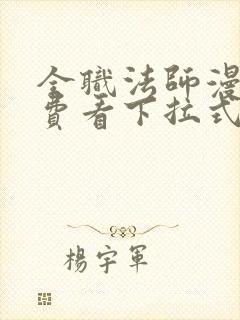 全職法師漫
費看下拉式
楊宇軍